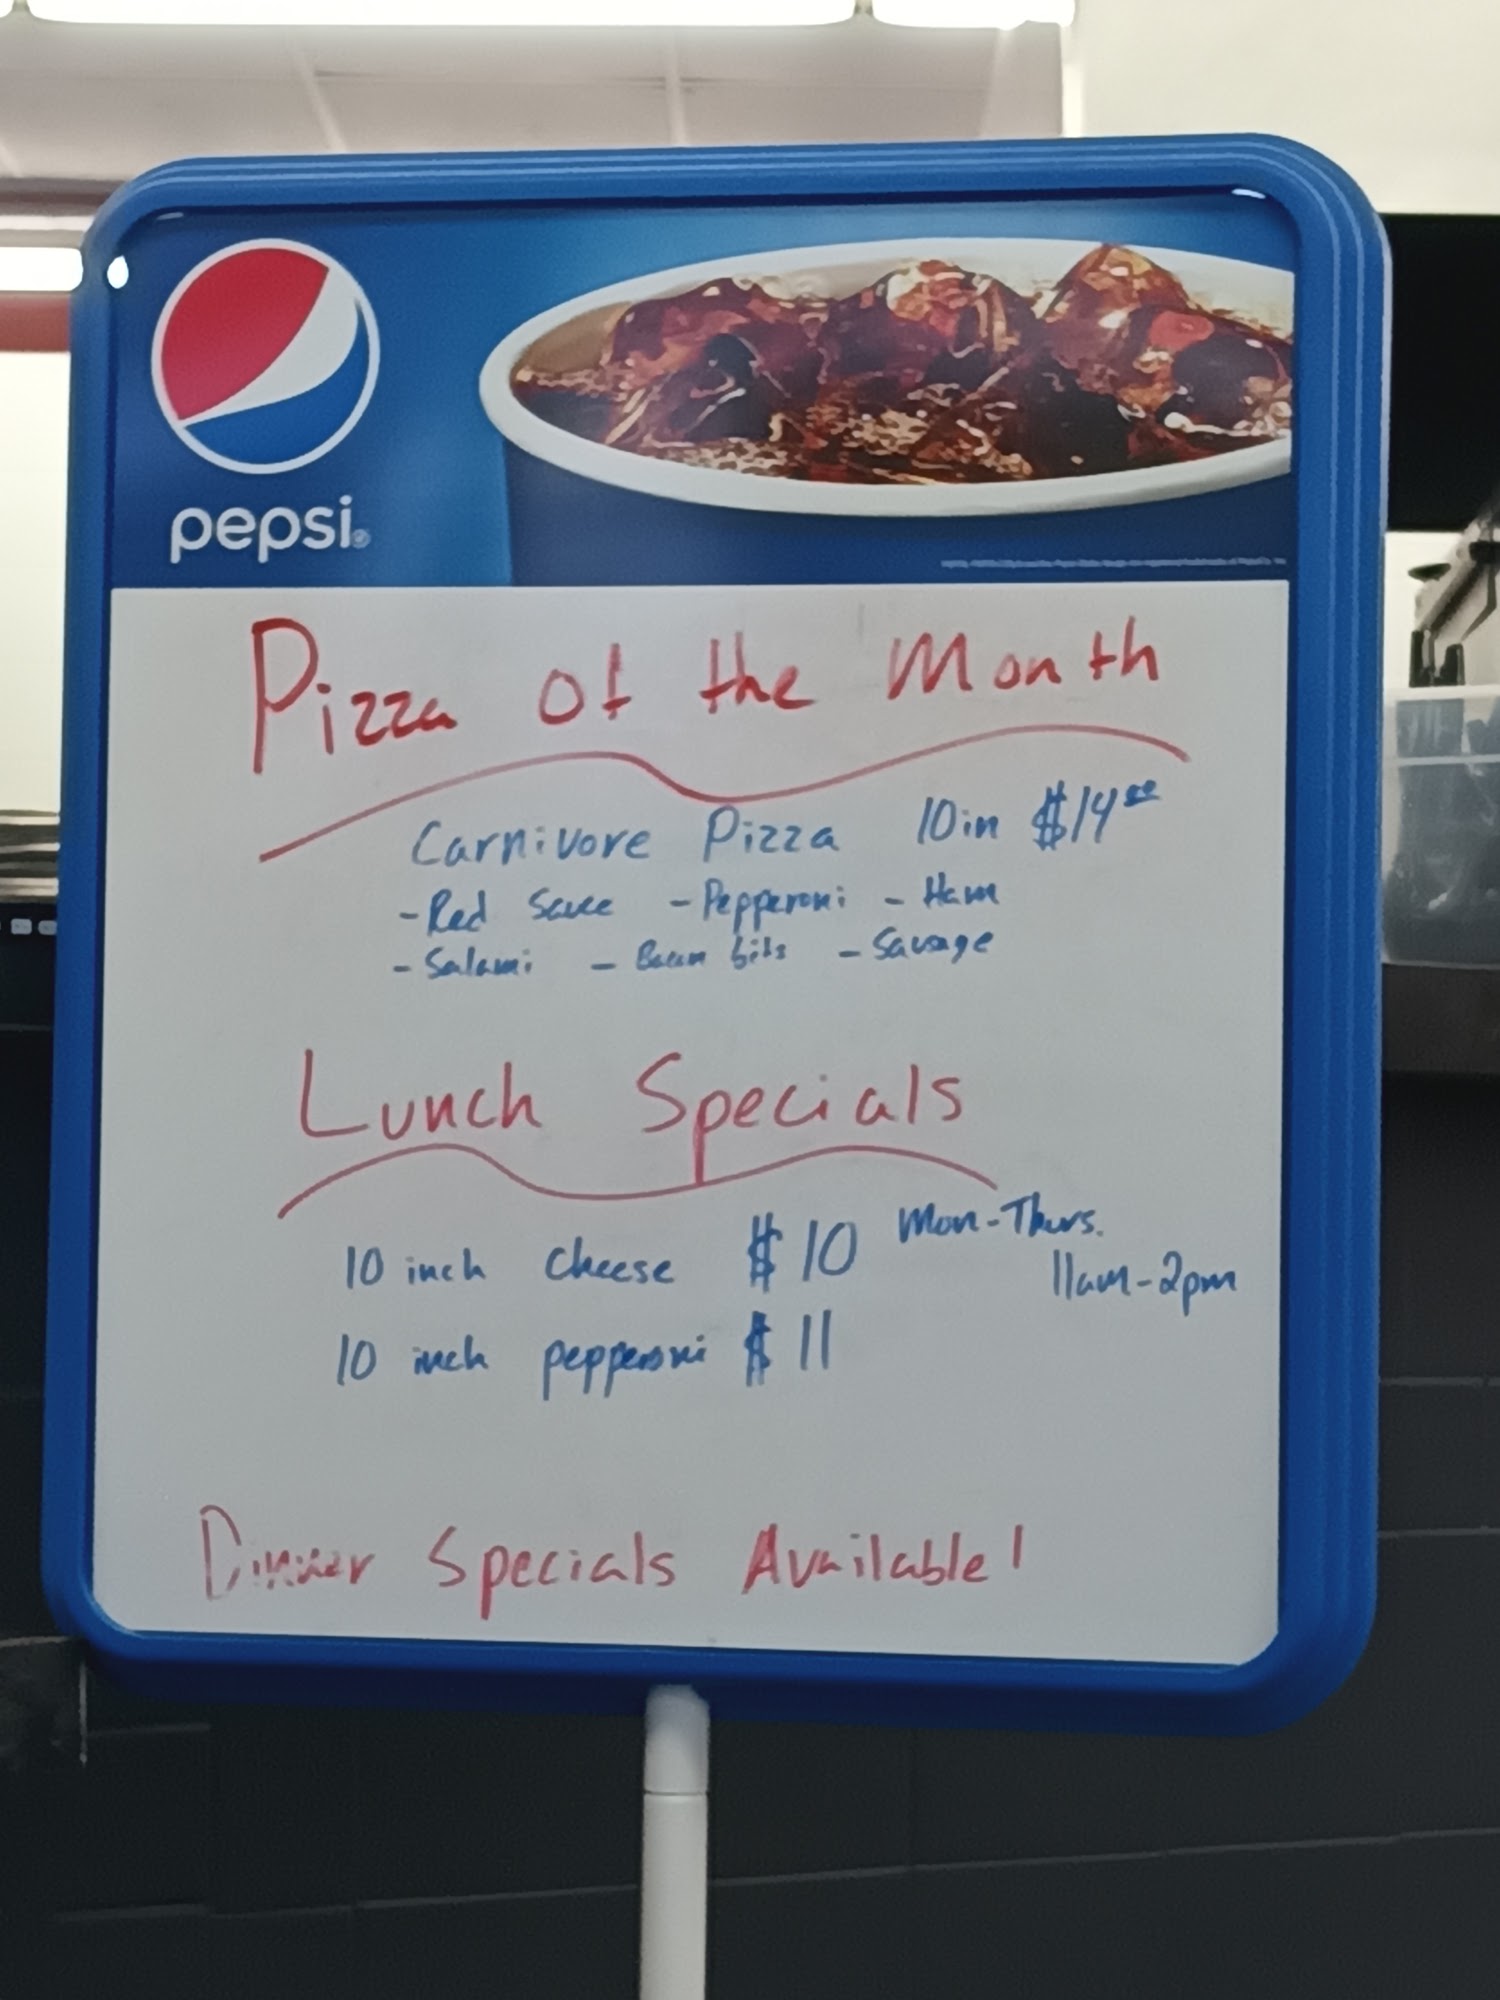 pepsi®
Pizza of the Month
Carnivore Pizza 10in $14⁰⁰
-Red Sauce -Pepperoni - Ham
- Salami - Bacon bits - Sausage
Lunch Specials
10 inch cheese $10 Mon-Thurs.
11am-2pm
10 inch pepperoni $11
Dinner Specials Available!